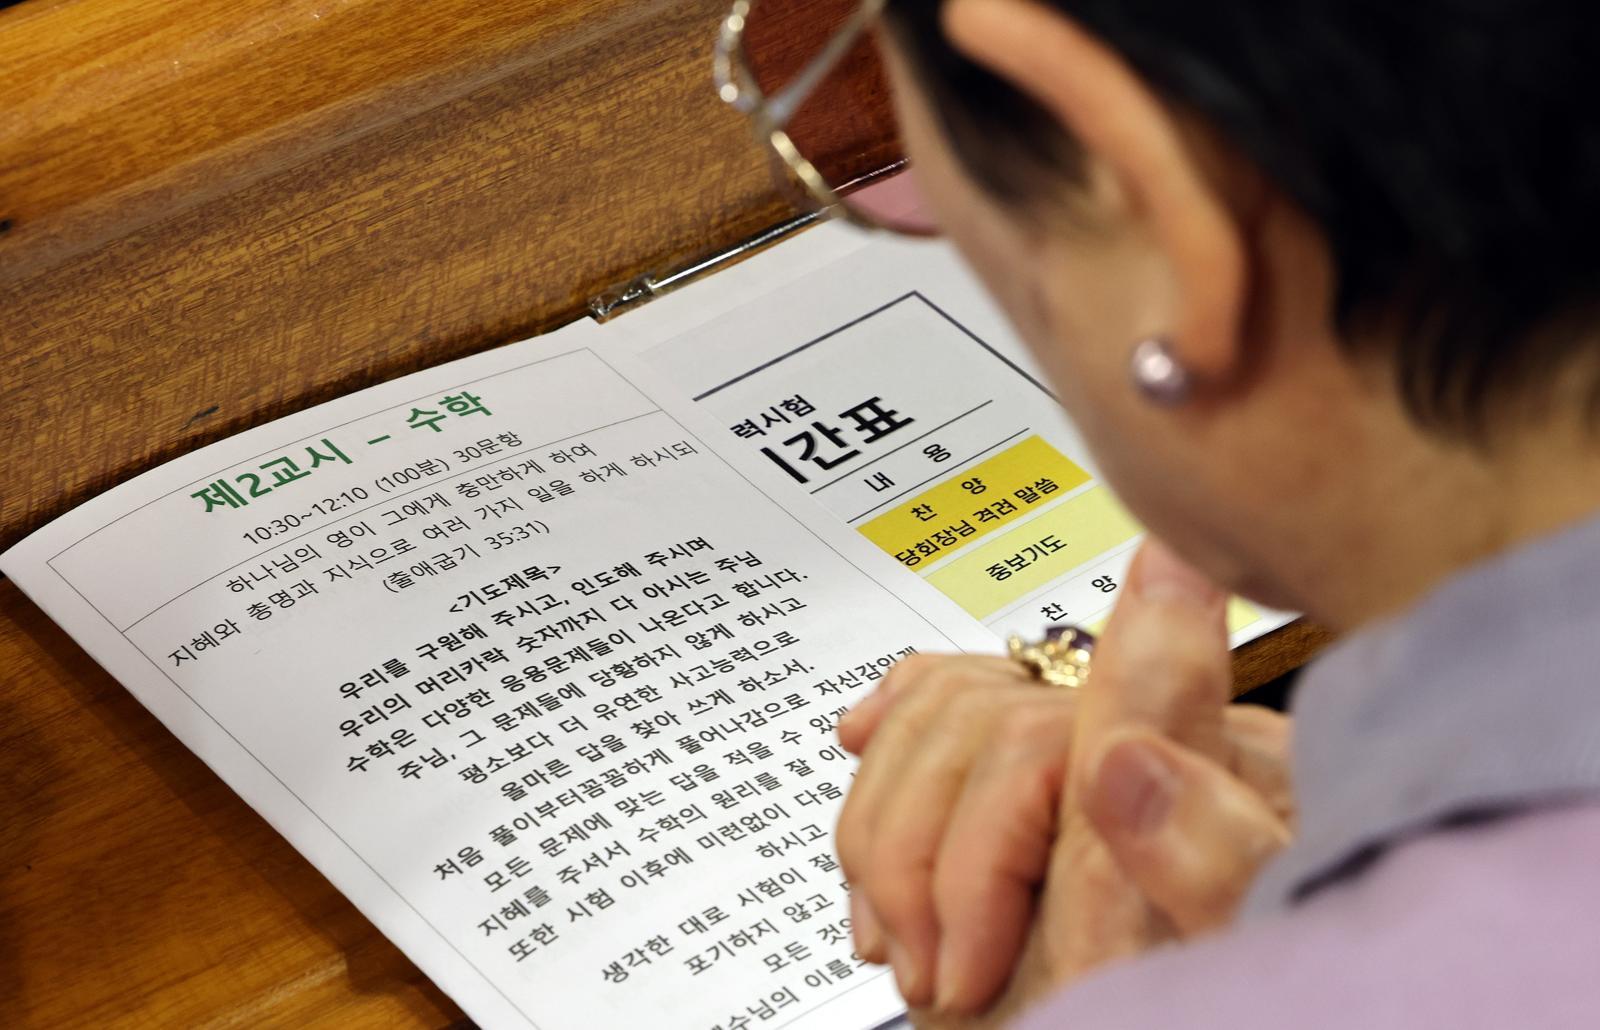 제2교시 - 수학
10:30~12:10 (100분) 30문항
하나님의 영이 그에게 충만하게 하여
지혜와 총명과 지식으로 여러 가지 일을 하게 하시되
(출애굽기 35:31)
<기도제목>
우리를 구원해 주시고, 인도해 주시며
우리의 머리카락 숫자까지 다 아시는 주님
수학은 다양한 응용문제들이 나온다고 합니다.
주님, 그 문제들에 당황하지 않게 하시고
평소보다 더 유연한 사고능력으로
올마른 답을 찾아 쓰게 하소서.
처음 풀이부터꼼꼼하게 풀어나감으로 자신감있게
모든 문제에 맞는 답을 적을 수 있게
지혜를 주셔서 수학의 원리를 잘
또한 시험 이후에 미련없이 다음
하시고
생각한 대로 시험이 잘
포기하지 않고
모든
이름으
력시험
간표
내 용
찬 양
당회장님 격려 말씀
중보기도
찬 양